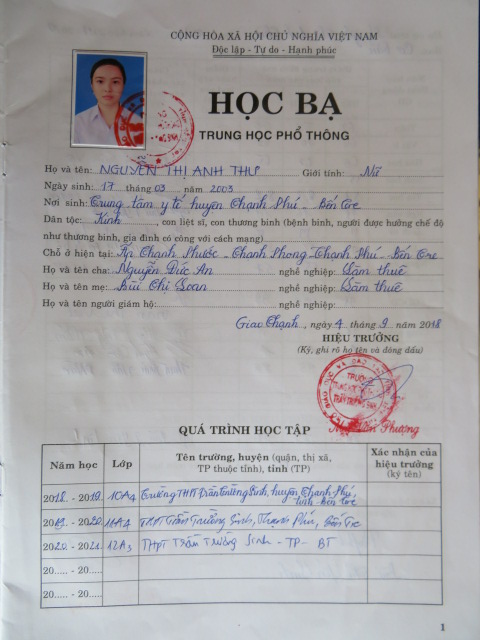 CỘNG HÒA XÃ HỘI CHỦ NGHĨA VIỆT NAM
Độc lập - Tự do - Hạnh phúc
HỌC BẠ
TRUNG HỌC PHỔ THÔNG
Họ và tên: NGUYỄN THỊ ANH THƯ Giới tính: Nữ
Ngày sinh: 17 tháng 03 năm 2003
Nơi sinh: Trung tâm y tế huyện Thạnh Phú - Bến Tre
Dân tộc: Kinh, con liệt sĩ, con thương binh (bệnh binh, người được hưởng chế độ
như thương binh, gia đình có công với cách mạng)
Chỗ ở hiện tại: Ấp Thạnh Phước - Thạnh Phong - Thạnh Phú - Bến Tre
Họ và tên cha: Nguyễn Đức An nghề nghiệp: Làm thuê
Họ và tên mẹ: Bùi Chi Loan nghề nghiệp: Làm thuê
Họ và tên người giám hộ: nghề nghiệp:
Giao Thạnh, ngày 4 tháng 9 năm 2018
HIỆU TRƯỞNG
(Ký, ghi rõ họ tên và đóng dấu)
TRƯỜNG
TRUNG HỌC
TRẦN TRƯỜNG SINH
Phượng
QUÁ TRÌNH HỌC TẬP
Năm học Lớp Tên trường, huyện (quận, thị xã, TP thuộc tỉnh), tỉnh (TP) Xác nhận của hiệu trưởng (ký tên)
2018 - 2019 10A4 Trường THPT Trần Trường Sinh, huyện Thạnh Phú, tỉnh Bến Tre
2019 - 2020 11A4 THPT Trần Trường Sinh, Thạnh Phú, Bến Tre
2020 - 2021 12A3 THPT Trần Trường Sinh - TP - BT
20..... - 20.....
20..... - 20.....
1